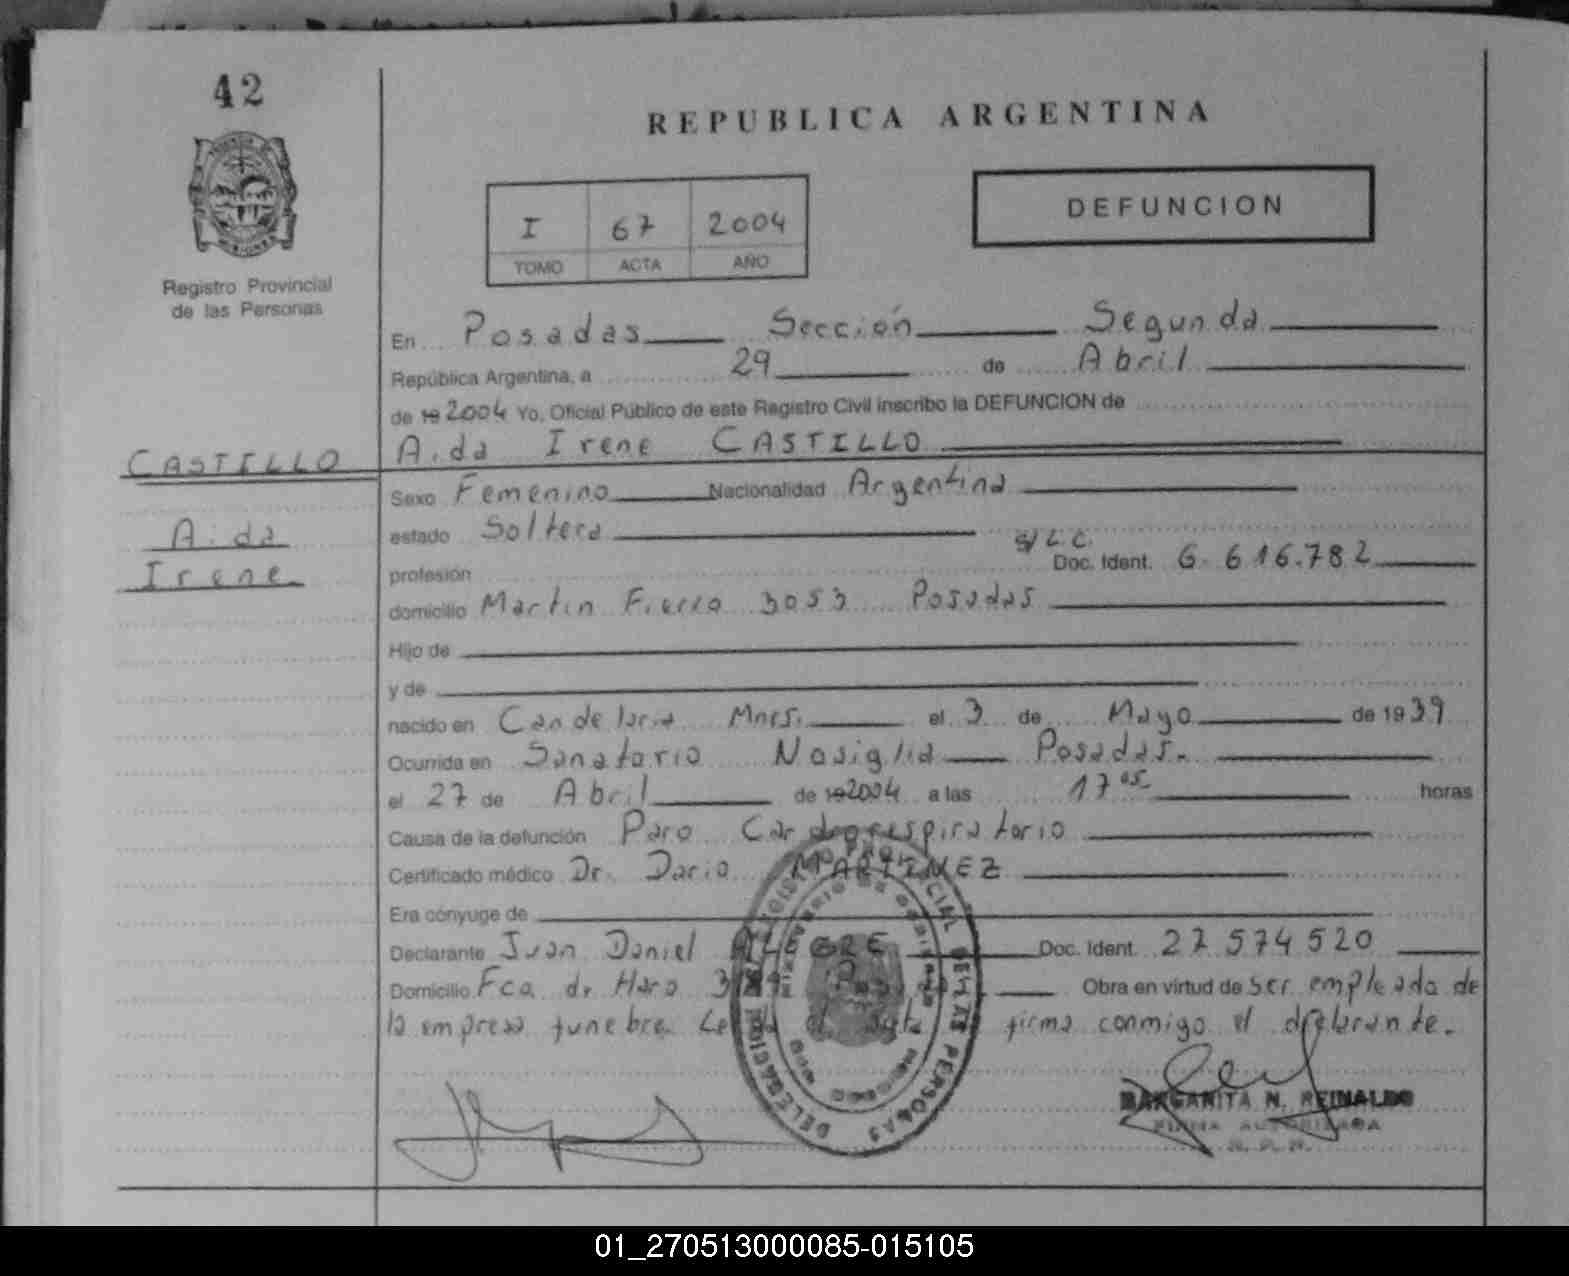 42
REPUBLICA ARGENTINA
DEFUNCION
I 67 2004
TOMO ACTA AÑO
Registro Provincial
de las Personas
En Posadas Sección Segunda
República Argentina, a 29 de Abril
de 19 2004 Yo, Oficial Público de este Registro Civil inscribo la DEFUNCION de
Aida Irene CASTILLO
CASTILLO
Aida
Irene
Sexo Femenino Nacionalidad Argentina
estado Soltera
profesión s/L.C. Doc. Ident. 6.616.782
domicilio Martin Fierro 3053 Posadas
Hijo de
y de
nacido en Candelaria Mnes. el 3 de Mayo de 1939
Ocurrida en Sanatorio Nosiglia Posadas.
el 27 de Abril de 19 2004 a las 17 05 horas
Causa de la defunción Paro Cardiorespiratorio
Certificado médico Dr. Dario MARTINEZ
Era cónyuge de
Declarante Juan Daniel ALEGRE Doc. Ident. 27.574.520
Domicilio Fco. de Haro Obra en virtud de Ser empleado de
la empresa funebre. firma conmigo el declarante.
DELEGACION
PERSONAS
MARGARITA N. REINALDO
FIRMA AUTORIZADA
R. P. P.
01_270513000085-015105